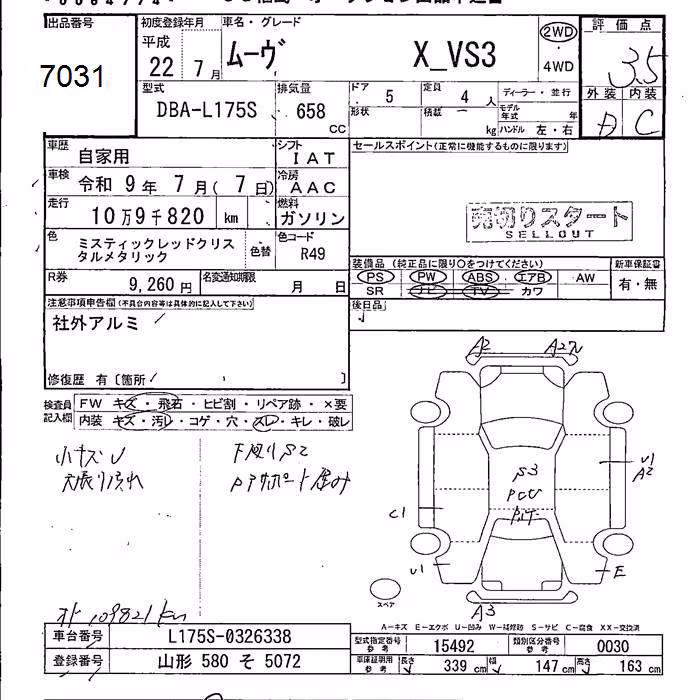 出品番号
7031
初度登録年月
平成
22 年 7 月
車名・グレード
ムーヴ X_VS3
2WD
・
4WD
評価点
3.5
外装 内装
A C
型式
DBA-L175S
排気量
658 CC
ドア
5
定員
4 人
形状
積載 ー kg
ディーラー・並行
モデル年式 年
ハンドル 左・右
車歴
自家用
シフト
IAT
車検
令和 9 年 7 月( 7 日)
冷房
AAC
走行
10万9千820 km
燃料
ガソリン
色
ミスティックレッドクリスタルメタリック
色替
色コード
R49
R券
9,260 円
名変通知期限
月 日
セールスポイント(正常に機能するものに限ります)
売切りスタート
SELLOUT
装備品 (純正品に限り○をつけてください)
PS PW ABS エアB AW
SR ナビ TV カワ
新車保証書
有・無
後日品
注意事項申告欄(不具合内容等は具体的に記入して下さい)
社外アルミ
修復歴 有〔箇所 . 〕
検査員
記入欄
FW キズ・飛石・ヒビ割・リペア跡・×要
内装・キズ・汚レ・コゲ・穴・スレ・キレ・破レ
小キズU
天張り汚れ
下廻りS2
A2
A2
U1
A2
S3
C1
U1
E
A3
スペア
A－キズ E－エクボ U－凹み W－補修跡 S－サビ C－腐食 XX－交換済
109821km
車台番号
L175S-0326338
登録番号
山形 580 そ 5072
型式指定番号
参考
15492
類別区分番号
参考
0030
車庫証明用
参考
長さ 339 cm
幅 147 cm
高さ 163 cm